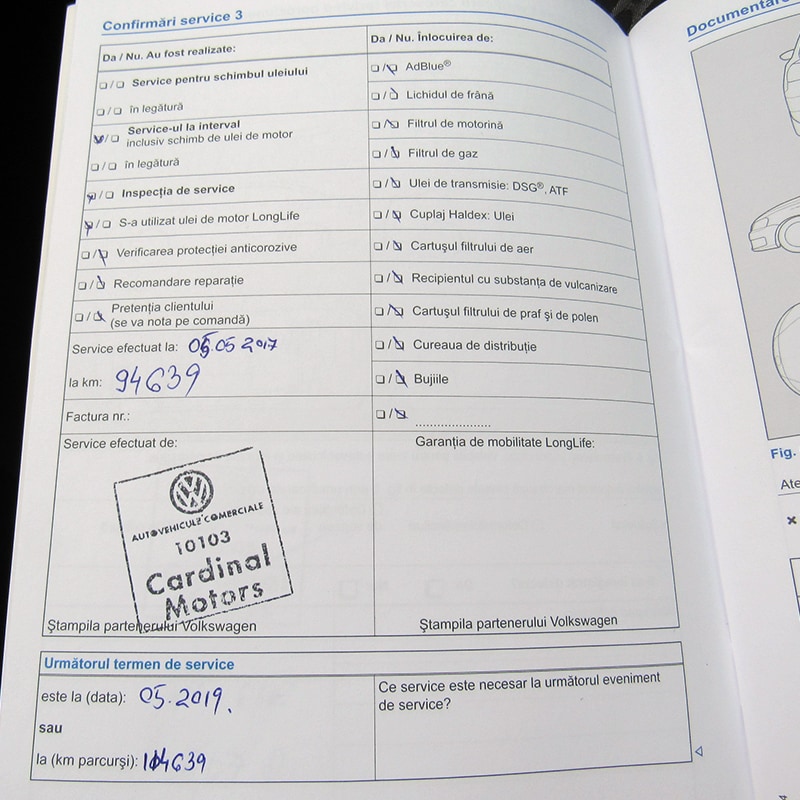 Confirmări service 3
Da / Nu. Au fost realizate:
❑ / ❑ Service pentru schimbul uleiului
❑ / ❑ în legătură
❑ / ❑ Service-ul la interval
inclusiv schimb de ulei de motor
❑ / ❑ în legătură
❑ / ❑ Inspecția de service
❑ / ❑ S-a utilizat ulei de motor LongLife
❑ / ❑ Verificarea protecției anticorozive
❑ / ❑ Recomandare reparație
❑ / ❑ Pretenția clientului
(se va nota pe comandă)
Service efectuat la: 05.05 2017
la km: 94639
Factura nr.:
Service efectuat de:
VW
AUTOVEHICULE COMERCIALE
10103
Cardinal
Motors
Ștampila partenerului Volkswagen
Da / Nu. Înlocuirea de:
❑ / ❑ AdBlue®
❑ / ❑ Lichidul de frână
❑ / ❑ Filtrul de motorină
❑ / ❑ Filtrul de gaz
❑ / ❑ Ulei de transmisie: DSG®, ATF
❑ / ❑ Cuplaj Haldex: Ulei
❑ / ❑ Cartuşul filtrului de aer
❑ / ❑ Recipientul cu substanța de vulcanizare
❑ / ❑ Cartuşul filtrului de praf şi de polen
❑ / ❑ Cureaua de distribuție
❑ / ❑ Bujiile
❑ / ❑ ......................
Garanția de mobilitate LongLife:
Ștampila partenerului Volkswagen
Următorul termen de service
este la (data): 05.2019.
sau
la (km parcurşi): 114639
Ce service este necesar la următorul eveniment
de service?
Fig.